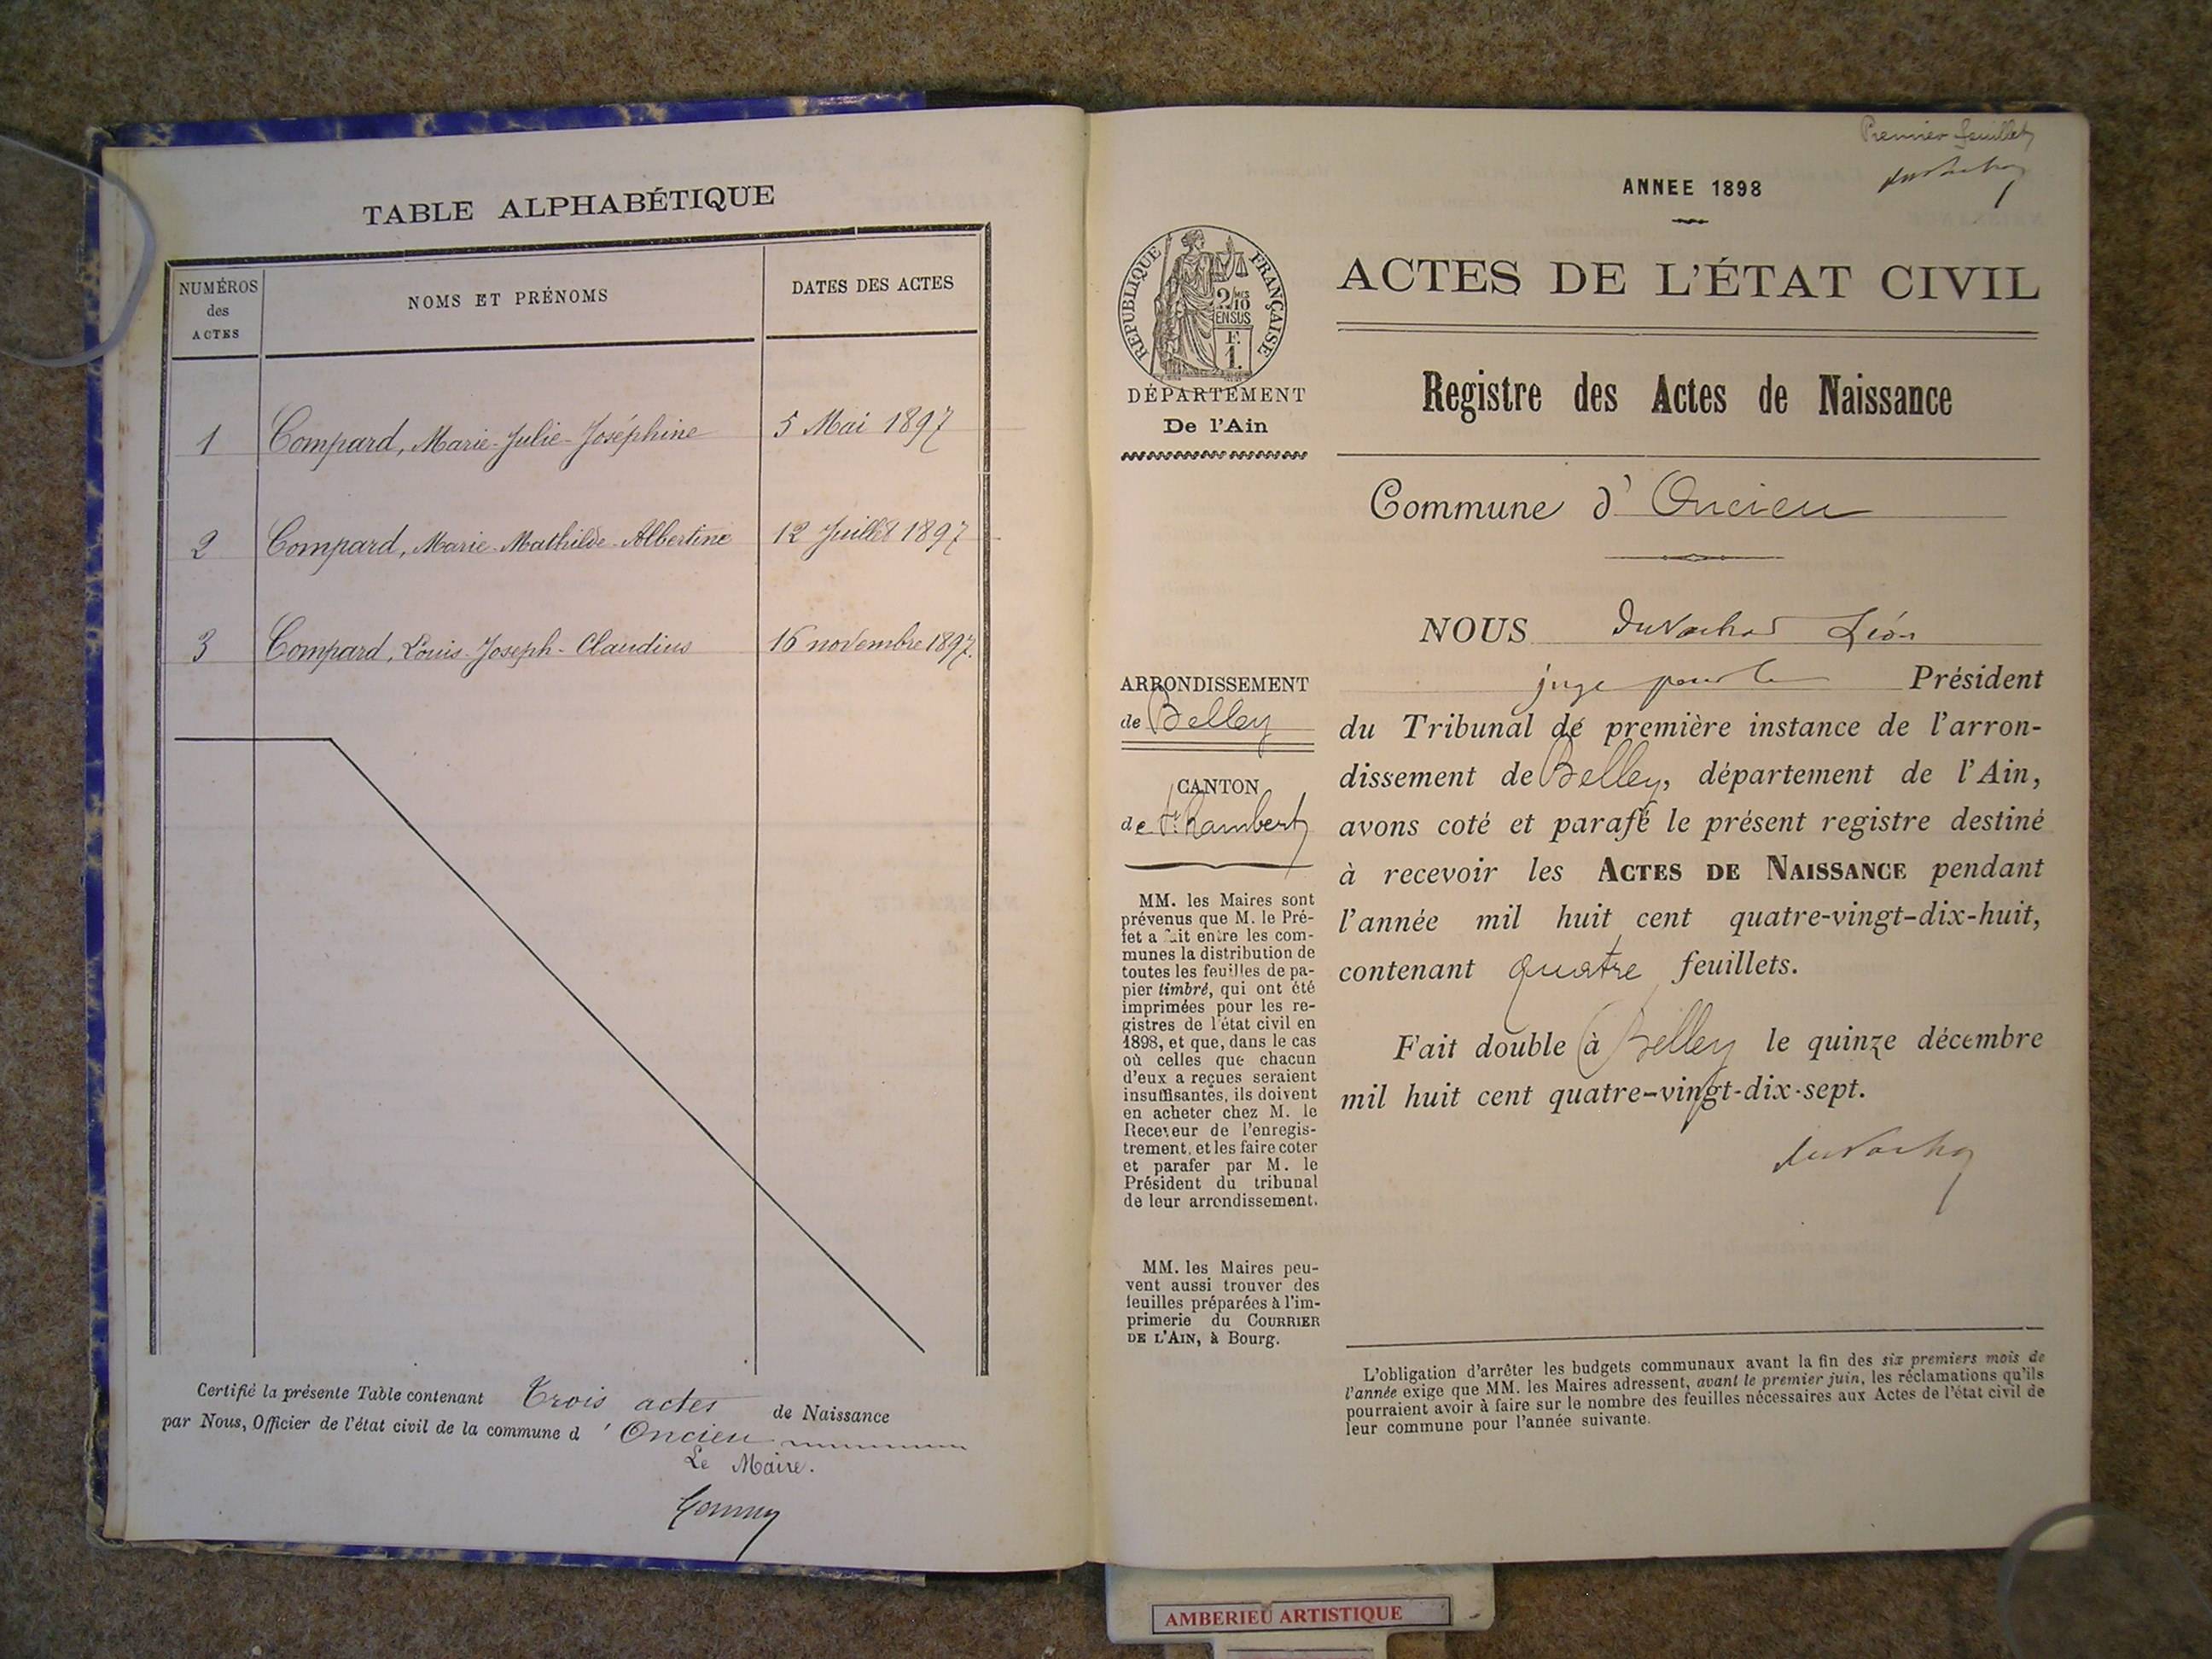 TABLE ALPHABÉTIQUE
NUMÉROS
des
ACTES
NOMS ET PRÉNOMS
DATES DES ACTES
1 Compard, Marie-Julie-Joséphine 5 Mai 1897
2 Compard, Marie-Mathilde-Albertine 12 Juillet 1897
3 Compard, Louis-Joseph-Claudius 16 novembre 1897.
Certifié la présente Table contenant Trois actes de Naissance
par Nous, Officier de l'état civil de la commune d'Oncieu
Le Maire.
Premier feuillet
ANNEE 1898
RÉPUBLIQUE FRANÇAISE
2/10 MES
EN SUS
F.
1.
DÉPARTEMENT
De l'Ain
ARRONDISSEMENT
de Belley
CANTON
de St Rambert
MM. les Maires sont
prévenus que M. le Pré-
fet a fait entre les com-
munes la distribution de
toutes les feuilles de pa-
pier timbré, qui ont été
imprimées pour les re-
gistres de l'état civil en
1898, et que, dans le cas
où celles que chacun
d'eux a reçues seraient
insuffisantes, ils doivent
en acheter chez M. le
Receveur de l'enregis-
trement, et les faire coter
et parafer par M. le
Président du tribunal
de leur arrondissement.
MM. les Maires peu-
vent aussi trouver des
feuilles préparées à l'im-
primerie du COURRIER
DE L'AIN, à Bourg.
ACTES DE L'ÉTAT CIVIL
Registre des Actes de Naissance
Commune d'Oncieu
NOUS Duvachat Léon
juge pour le Président
du Tribunal de première instance de l'arron-
dissement de Belley, département de l'Ain,
avons coté et parafé le présent registre destiné
à recevoir les ACTES DE NAISSANCE pendant
l'année mil huit cent quatre-vingt-dix-huit,
contenant quatre feuillets.
Fait double à Belley le quinze décembre
mil huit cent quatre-vingt-dix-sept.
L'obligation d'arrêter les budgets communaux avant la fin des six premiers mois de
l'année exige que MM. les Maires adressent, avant le premier juin, les réclamations qu'ils
pourraient avoir à faire sur le nombre des feuilles nécessaires aux Actes de l'état civil de
leur commune pour l'année suivante.
AMBERIEU ARTISTIQUE